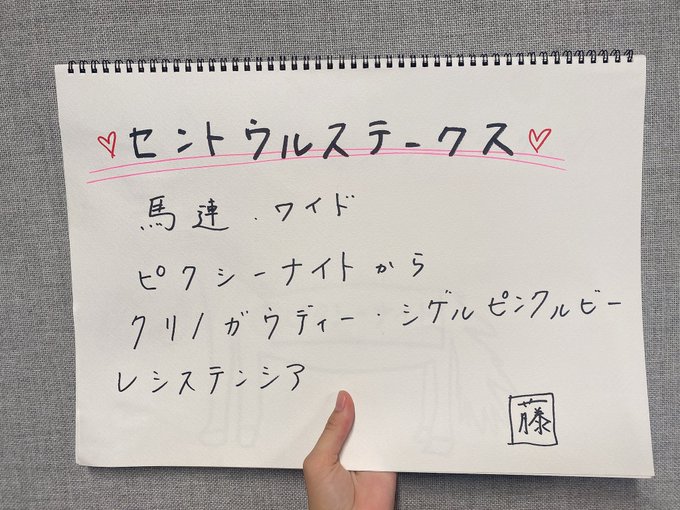 ♡セントウルステークス♡
馬連・ワイド
ピクシーナイトから
クリノガウディー・シゲルピンクルビー
レシステンシア
藤